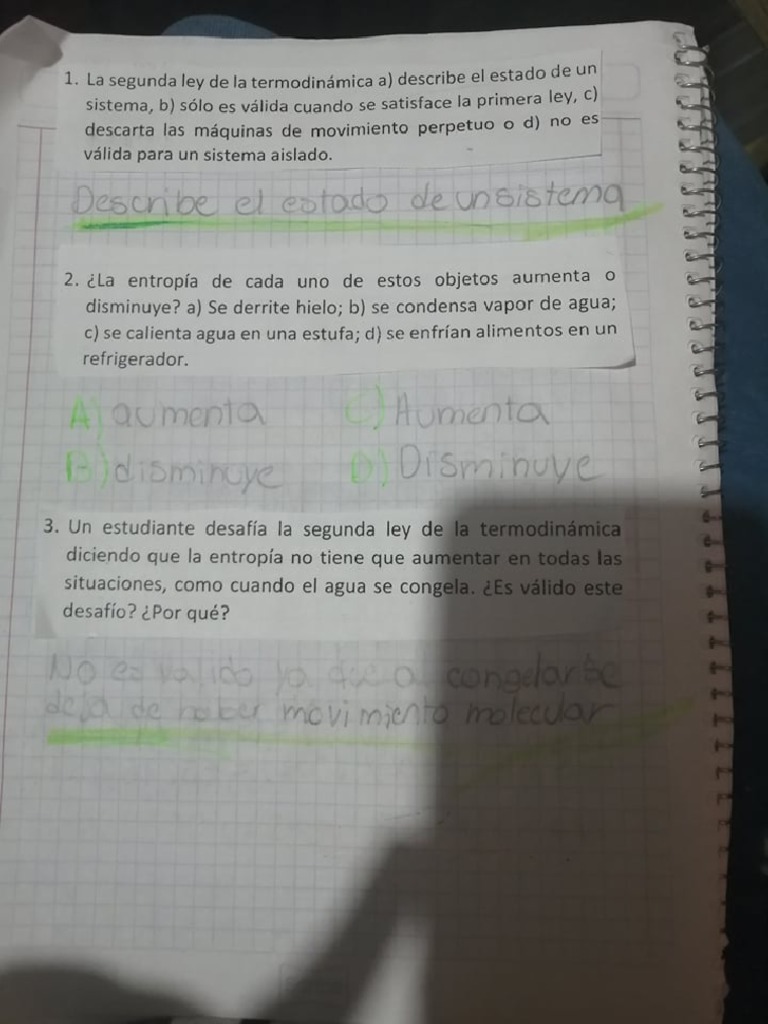 1. La segunda ley de la termodinámica a) describe el estado de un
sistema, b) sólo es válida cuando se satisface la primera ley, c)
descarta las máquinas de movimiento perpetuo o d) no es
válida para un sistema aislado.
Describe el estado de un sistema
2. ¿La entropía de cada uno de estos objetos aumenta o
disminuye? a) Se derrite hielo; b) se condensa vapor de agua;
c) se calienta agua en una estufa; d) se enfrían alimentos en un
refrigerador.
A) aumenta C) Aumenta
B) disminuye D) Disminuye
3. Un estudiante desafía la segunda ley de la termodinámica
diciendo que la entropía no tiene que aumentar en todas las
situaciones, como cuando el agua se congela. ¿Es válido este
desafío? ¿Por qué?
No es valido ya que al congelarse
deja de haber movimiento molecular